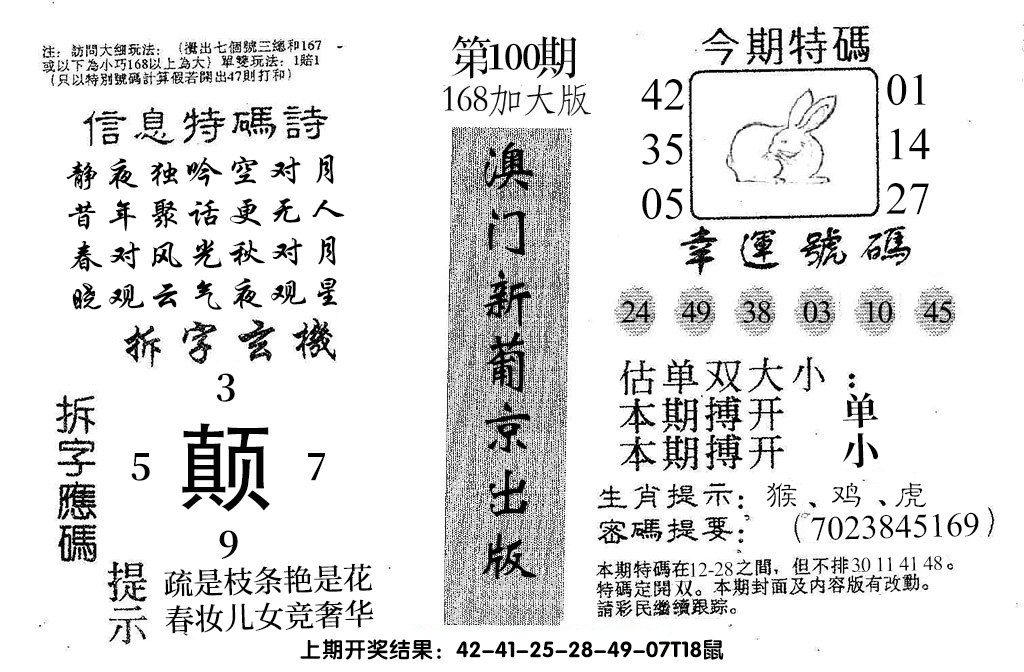 注：訪問大细玩法：（攪出七個號三總和167
或以下為小巧168以上為大）單雙玩法：1賠1
（只以特別號碼計算假若開出47則打和）
信息特碼詩
静夜独吟空对月
昔年聚话更无人
春对风光秋对月
晓观云气夜观星
拆字玄機
拆字應碼
3
5 颠 7
9
提示
疏是枝条艳是花
春妆儿女竞奢华
第100期
168加大版
澳门新葡京出版
今期特碼
42 01
35 14
05 27
幸運號碼
24 49 38 03 10 45
估单双大小：
本期搏开 单
本期搏开 小
生肖提示：猴、鸡、虎
密碼提要：（7023845169）
本期特碼在12-28之間，但不排30 11 41 48。
特碼定開双。本期封面及内容版有改動。
請彩民繼續跟踪。
上期开奖结果：42-41-25-28-49-07T18鼠